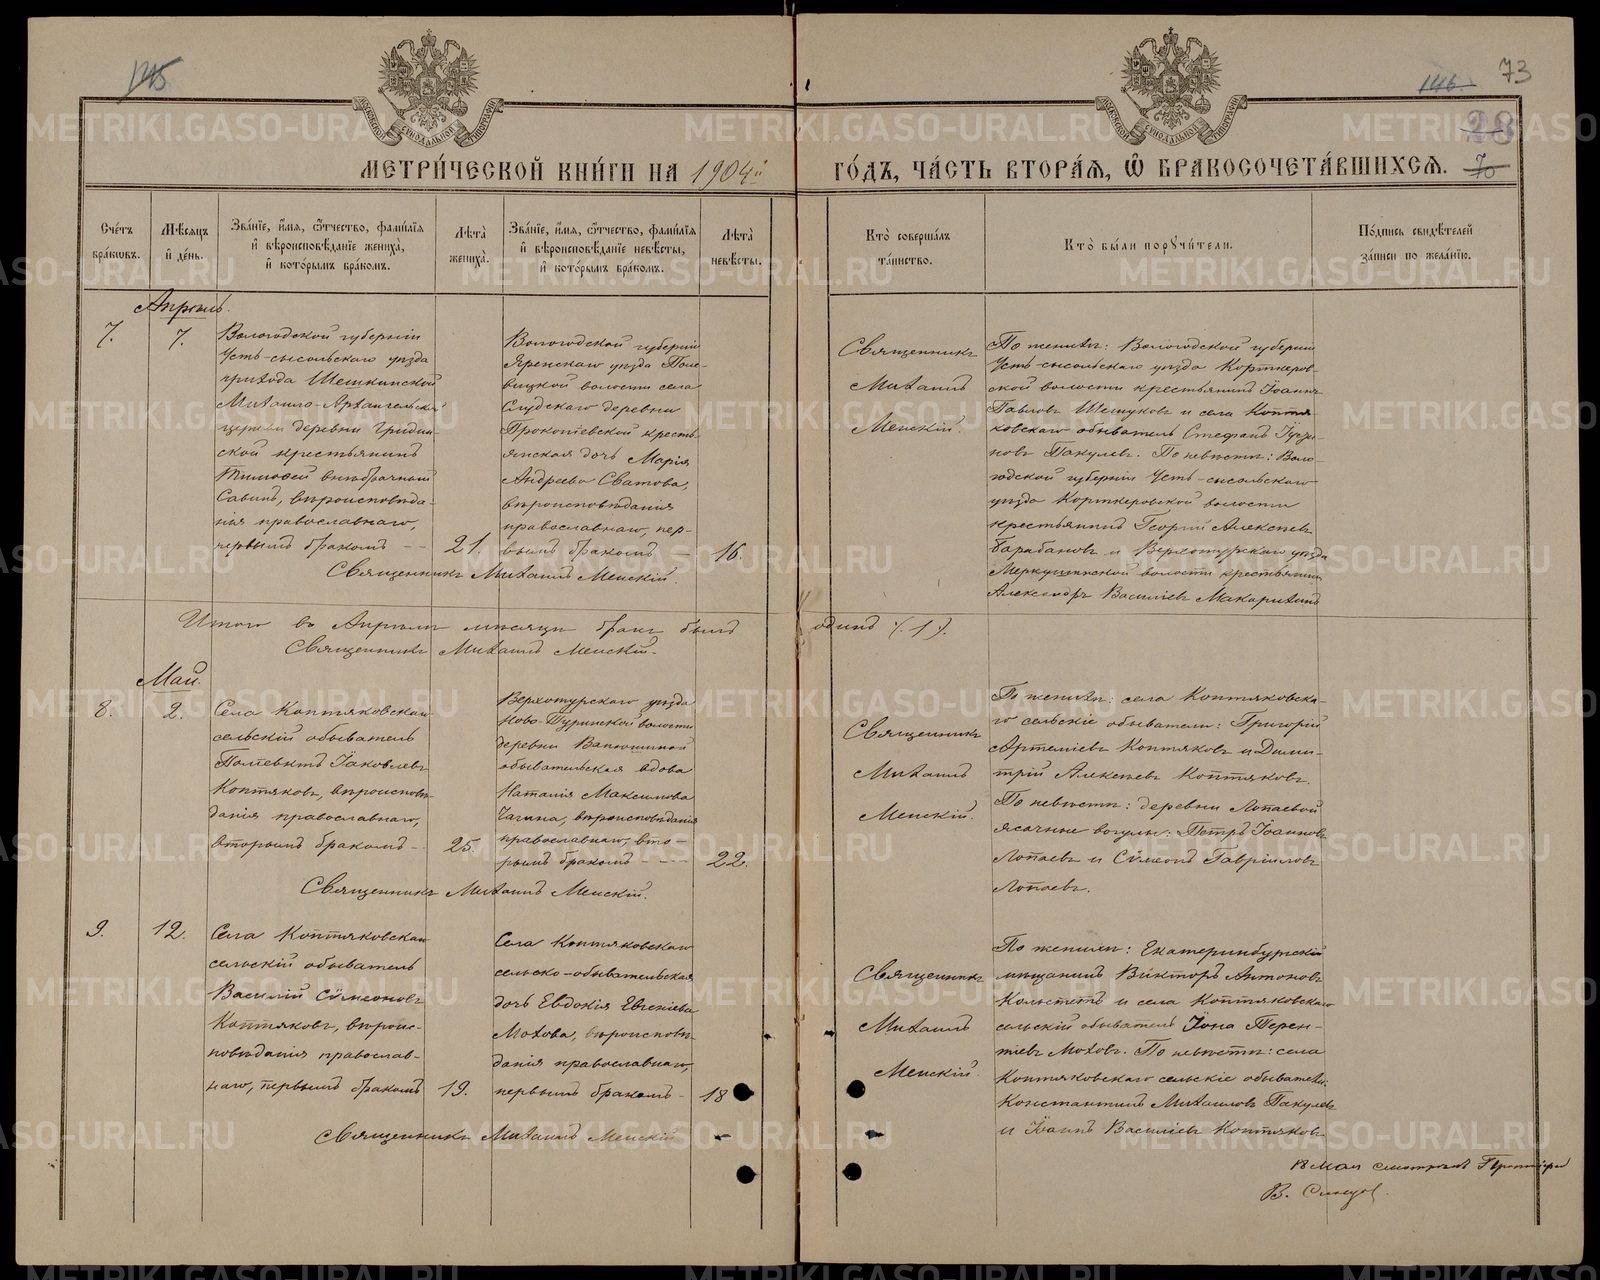 145
146
73
28
70
МЕТРИ́ЧЕСКОЙ КНИ́ГИ НА 1904й ГО́ДЪ, ЧА́СТЬ ВТОРА́Я, Ѡ БРАКОСОЧЕТА́ВШИХСЯ.
Сче́тъ бра́кωвъ.
Мѣ́сяцъ и҆ де́нь.
Зва́нїе, и҆́мя, ѻ҆́тчество, фами́лїя и҆ вѣроисповѣ́данїе жениха̀, и҆ кото́рымъ бра́комъ.
Лѣта̀ жениха̀.
Зва́нїе, и҆́мя, ѻ҆́тчество, фами́лїя и҆ вѣроисповѣ́данїе невѣ́сты, и҆ кото́рымъ бра́комъ.
Лѣта̀ невѣ́сты.
Кто̀ соверша́лъ та́инство.
Кто̀ бы́ли порꙋчи́тели.
По́дпись свидѣ́телей за́писи по жела́нїю.
Апрѣль.
7.
7.
Вологодской губерніи
Усть-сысольскаго уѣзда
прихода Шешкинской
Михаило-Архангельской
церкви деревни Гридин-
ской крестьянинъ
Тимоѳей внѣбрачный
Савинъ, вѣроисповѣда-
нія православнаго,
первымъ бракомъ --
21.
Вологодской губерніи
Яренскаго уѣзда
волости села
Слудскаго деревни
Прокопіевской кресть-
янская дочь Марія
Андреева Сватова,
вѣроисповѣданія
православнаго, пер-
вымъ бракомъ -
16.
Священникъ Михаилъ Менскій.
Священникъ
Михаилъ
Менскій.
По женихѣ: Вологодской губерніи
Усть-сысольскаго уѣзда Корткеров-
ской волости крестьянинъ Іоаннъ
Павловъ Шешуковъ и села Коптя-
ковскаго обыватель Стефанъ
Пакулевъ. По невѣстѣ: Воло-
годской губерніи Усть-сысольскаго
уѣзда Корткеровской волости
крестьянинъ Георгій Алексѣевъ
Барабановъ и Верхотурскаго уѣзда
Меркушинской волости крестьянинъ
Александръ Василіевъ Макарихинъ
Итого въ Апрѣлѣ мѣсяцѣ бракъ былъ одинъ /.1/.
Священникъ Михаилъ Менскій.
Май.
8.
2.
Села Коптяковскаго
сельскій обыватель
Полиевктъ Іаковлевъ
Коптяковъ, вѣроисповѣ-
данія православнаго,
вторымъ бракомъ -
25.
Верхотурскаго уѣзда
Ново-Туринской волости
деревни Ванюшиной
обывательская вдова
Наталія Максимова
Чагина, вѣроисповѣданія
православнаго, вто-
рымъ бракомъ - - -
22.
Священникъ Михаилъ Менскій.
Священникъ
Михаилъ
Менскій.
По женихѣ: села Коптяковска-
го сельскіе обыватели: Григорій
Артеміевъ Коптяковъ и Дими-
трій Алексѣевъ Коптяковъ.
По невѣстѣ: деревни Лопаевой
ясачные вогулы: Петръ Іоанновъ
Лопаевъ и Сѵмеонъ Гавріиловъ
Лопаевъ.
9.
12.
Села Коптяковскаго
сельскій обыватель
Василій Сѵмеоновъ
Коптяковъ, вѣроис-
повѣданія православ-
наго, первымъ бракомъ
19.
Села Коптяковскаго
сельско-обывательская
дочь Евдокія Евгеніева
Мохова, вѣроисповѣ-
данія православнаго,
первымъ бракомъ -
18
Священникъ Михаилъ Менскій
Священникъ
Михаилъ
Менскій.
По женихѣ: Екатеринбургскій
мѣщанинъ Викторъ Антоновъ
и села Коптяковскаго
сельскій обыватель Іона Терен-
тіевъ Моховъ. По невѣстѣ: села
Коптяковскаго сельскіе обыватели:
Константинъ Михаиловъ Пакулевъ
и Іоаннъ Василіевъ Коптяковъ
18 мая смотрѣлъ
В.
METRIKI.GASO-URAL.RU